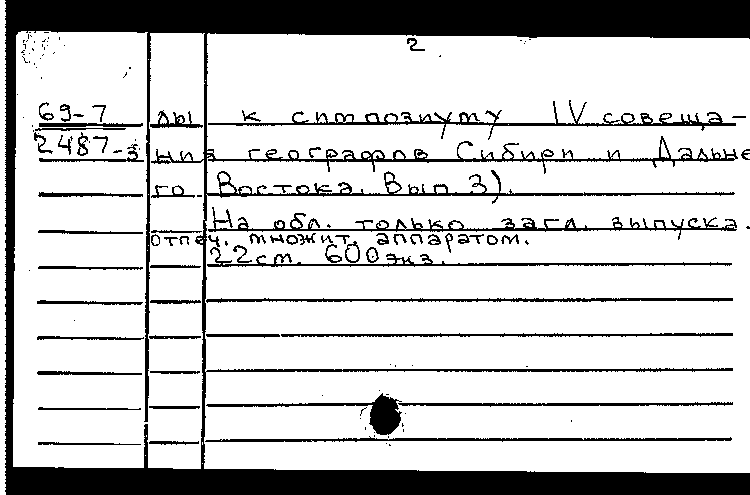 2
69-7 лы к симпозиуму IV совеща-
2487-3 ния географов Сибири и Дальне
го Востока. Вып. 3).
На обл. только загл. выпуска.
Отпеч. множит. аппаратом.
22 см. 600 экз.